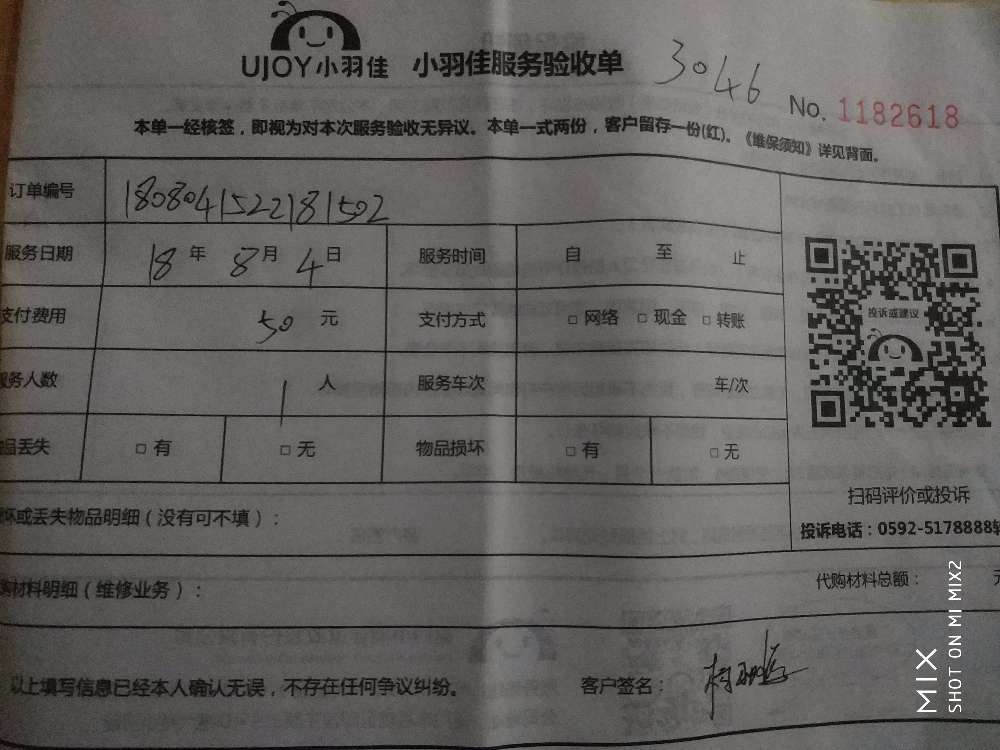 UJOY小羽佳 小羽佳服务验收单 3046
No. 1182618
本单一经核签，即视为对本次服务验收无异议。本单一式两份，客户留存一份(红)。《维保须知》详见背面。
订单编号 1808041522181502
服务日期 18 年 8 月 4 日 服务时间 自 至 止
支付费用 50 元 支付方式 □ 网络 □ 现金 □ 转账
服务人数 1 人 服务车次 车/次
品丢失 □ 有 □ 无 物品损坏 □ 有 □ 无
投诉或建议
扫码评价或投诉
投诉电话：0592-5178888转
坏或丢失物品明细（没有可不填）：
材料明细（维修业务）： 代购材料总额：
以上填写信息已经本人确认无误，不存在任何争议纠纷。 客户签名：
MIX
SHOT ON MI MIX2